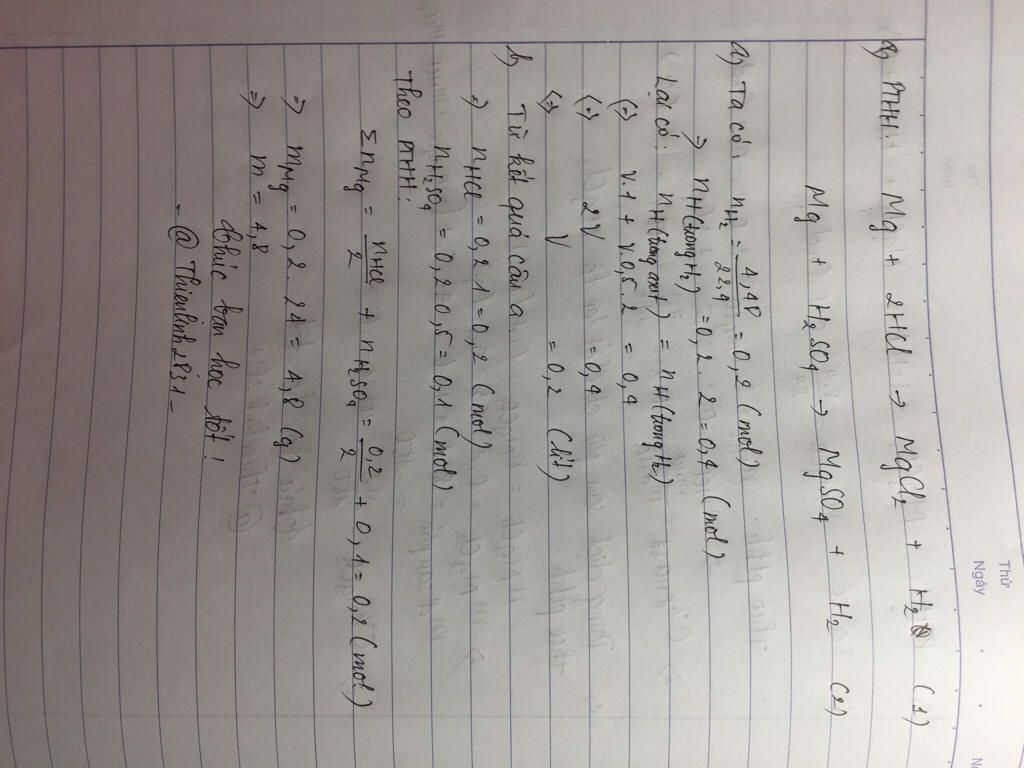 Thứ
Ngày
a) PTHH: Mg + 2HCl → MgCl2 + H2 (1)
Mg + H2SO4 → MgSO4 + H2 (2)
a) Ta có: nH2 = 4,48/22,4 = 0,2 (mol)
=> nH(trong H2) = 0,2 . 2 = 0,4 (mol)
Lại có: nH(trong axit) = nH(trong H2)
(=) V.1 + V.0,5.2 = 0,4
(=) 2V = 0,4
(=) V = 0,2 (lít)
b) Từ kết quả câu a.
=> nHCl = 0,2.1 = 0,2 (mol)
nH2SO4 = 0,2.0,5 = 0,1 (mol)
Theo PTHH:
ΣnMg = nHCl/2 + nH2SO4 = 0,2/2 + 0,1 = 0,2 (mol)
=> mMg = 0,2 . 24 = 4,8 (g)
=> m = 4,8
Chúc bạn học tốt!